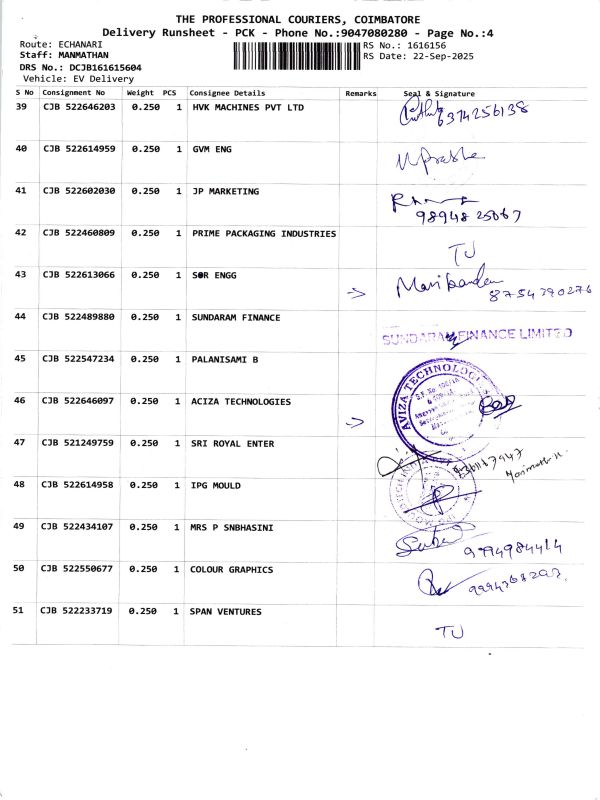 THE PROFESSIONAL COURIERS, COIMBATORE
Delivery Runsheet - PCK - Phone No.:9047080280 - Page No.:4
Route: ECHANARI
RS No.: 1616156
Staff: MANMATHAN
RS Date: 22-Sep-2025
DRS No.: DCJB161615604
Vehicle: EV Delivery
S No Consignment No Weight PCS Consignee Details Remarks Seal & Signature
39 CJB 522646203 0.250 1 HVK MACHINES PVT LTD 6374256138
40 CJB 522614959 0.250 1 GVM ENG
41 CJB 522602030 0.250 1 JP MARKETING
98948 25067
42 CJB 522460809 0.250 1 PRIME PACKAGING INDUSTRIES
TJ
43 CJB 522613066 0.250 1 SOR ENGG
8754790276
44 CJB 522489880 0.250 1 SUNDARAM FINANCE
SUNDARAM FINANCE LIMITED
45 CJB 522547234 0.250 1 PALANISAMI B
46 CJB 522646097 0.250 1 ACIZA TECHNOLOGIES
AVIZA TECHNOLOGIES
47 CJB 521249759 0.250 1 SRI ROYAL ENTER
48 CJB 522614958 0.250 1 IPG MOULD
49 CJB 522434107 0.250 1 MRS P SNBHASINI
9994984414
50 CJB 522550677 0.250 1 COLOUR GRAPHICS
51 CJB 522233719 0.250 1 SPAN VENTURES
TJ